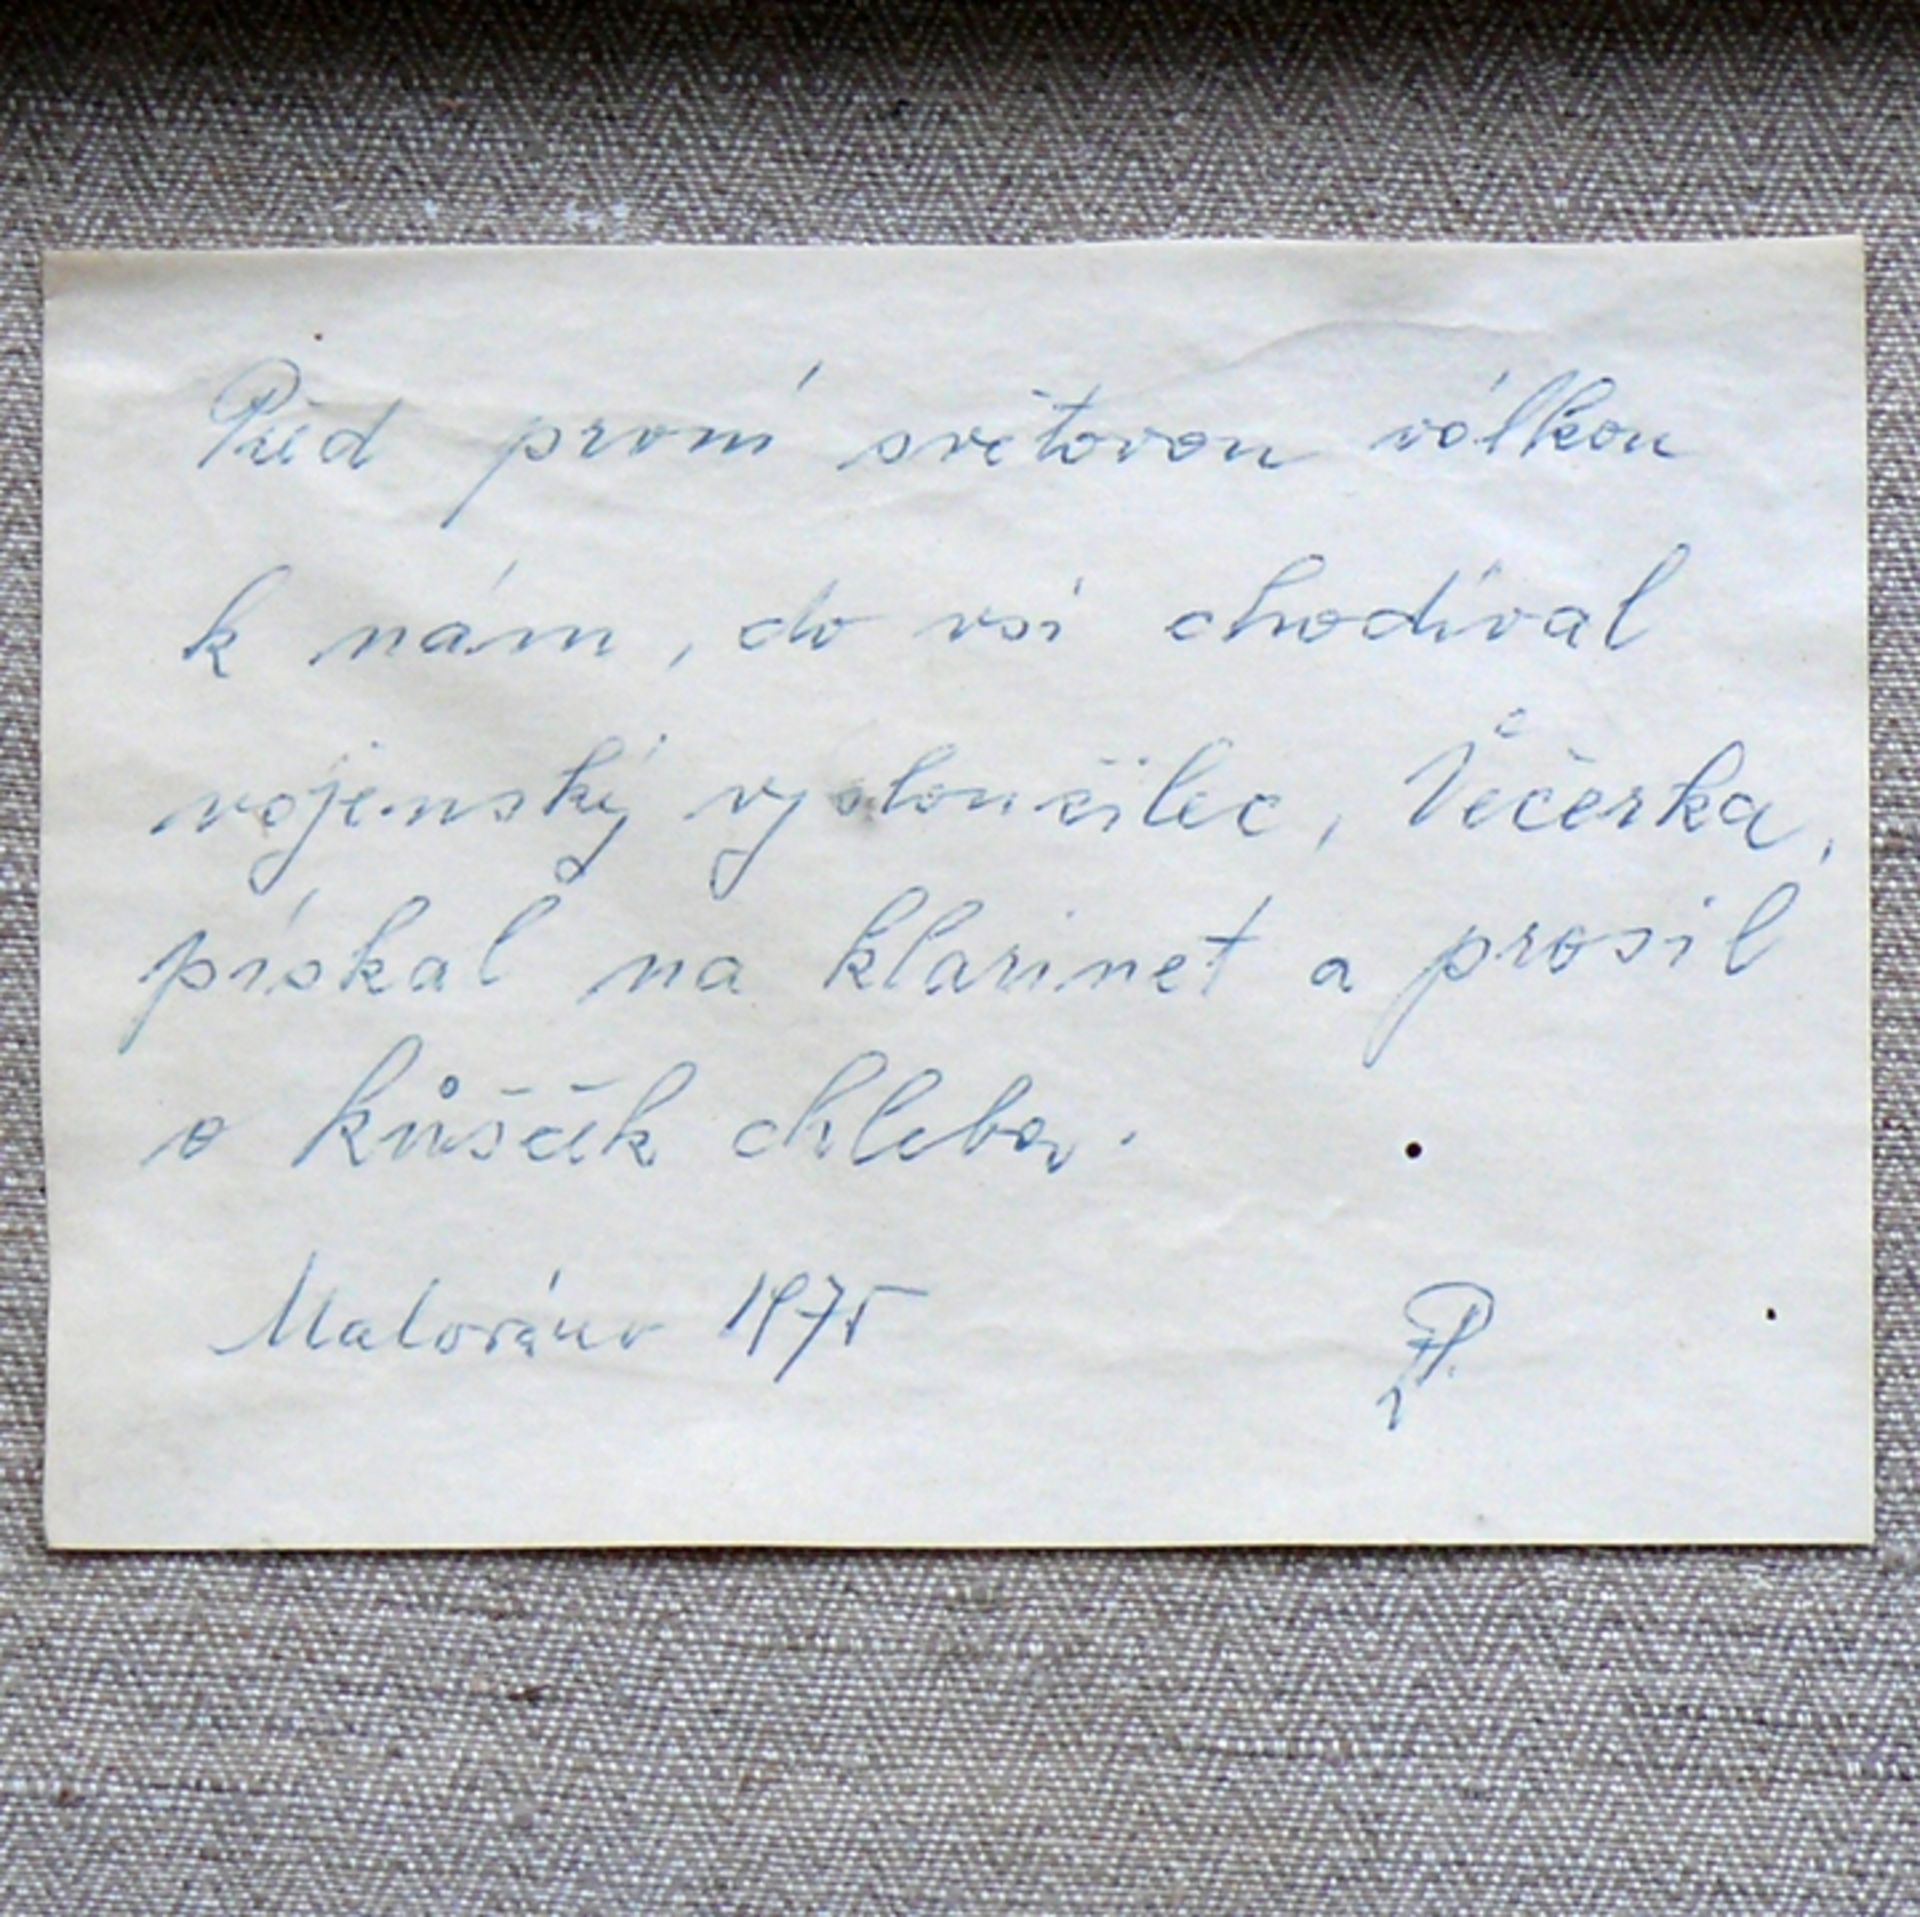 Před první světovou válkou
k nám, do vsi chodíval
vojenský vysloužilec, Večerka,
pískal na klarinet a prosil
o kůšček chleba.
1975